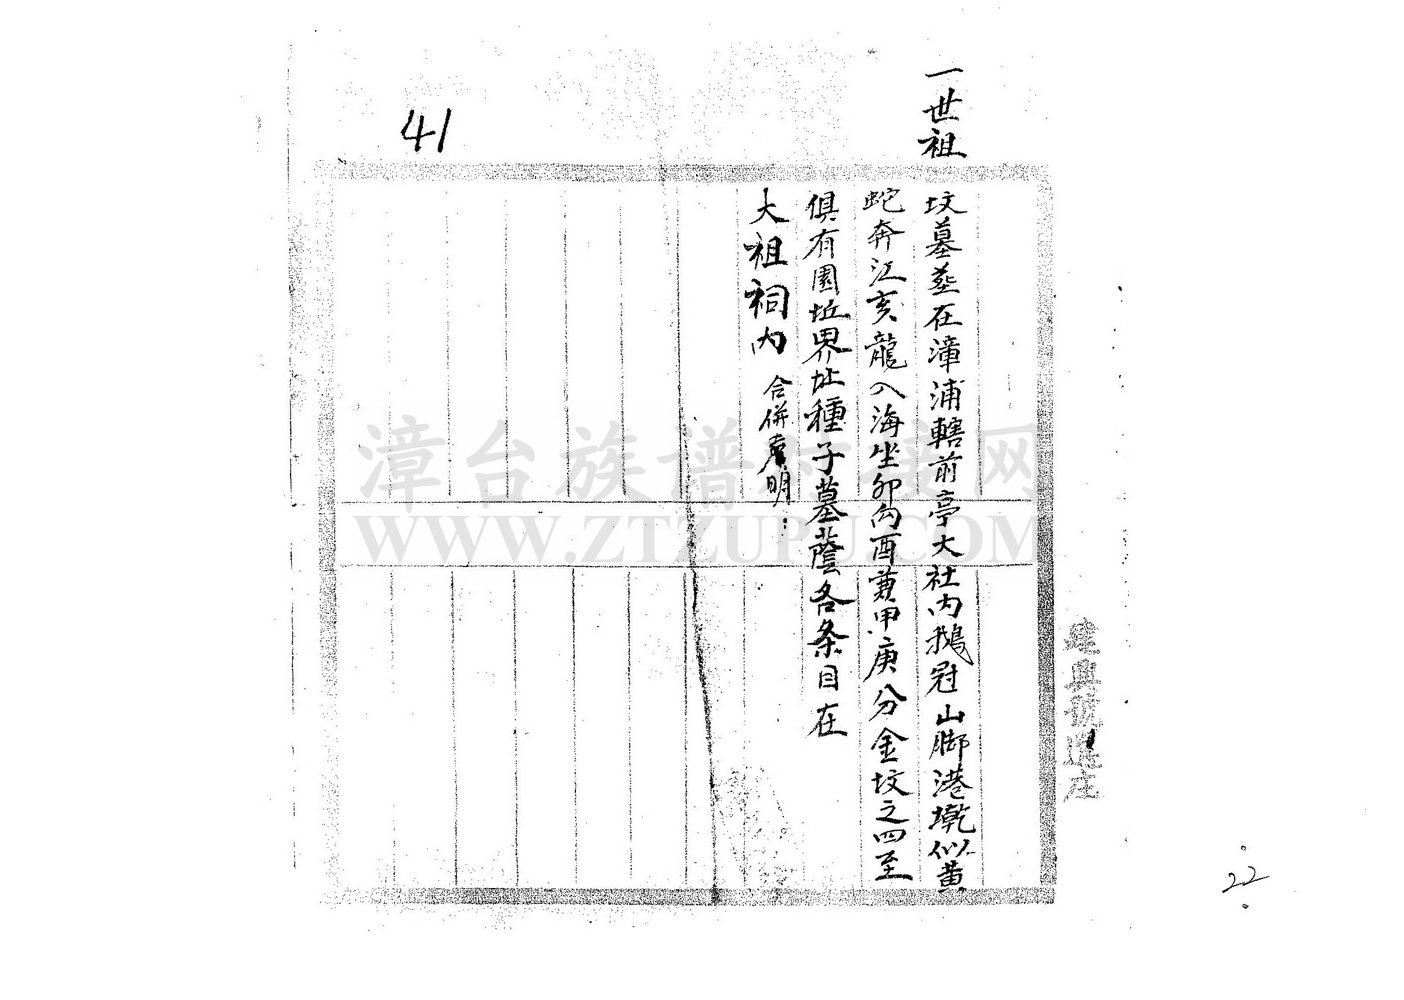 一世祖
坟墓葬在漳浦轄前亭大社内鵝冠山脚港墘似黄
蛇奔江亥龍入海坐卯向酉兼甲庚分金坟之四至
俱有園坵界址種子墓蔭各条目在
大祖祠内 合併聲明:
41
建興號選庄
22
漳台族谱对接网
WWW.ZTZUPU.COM